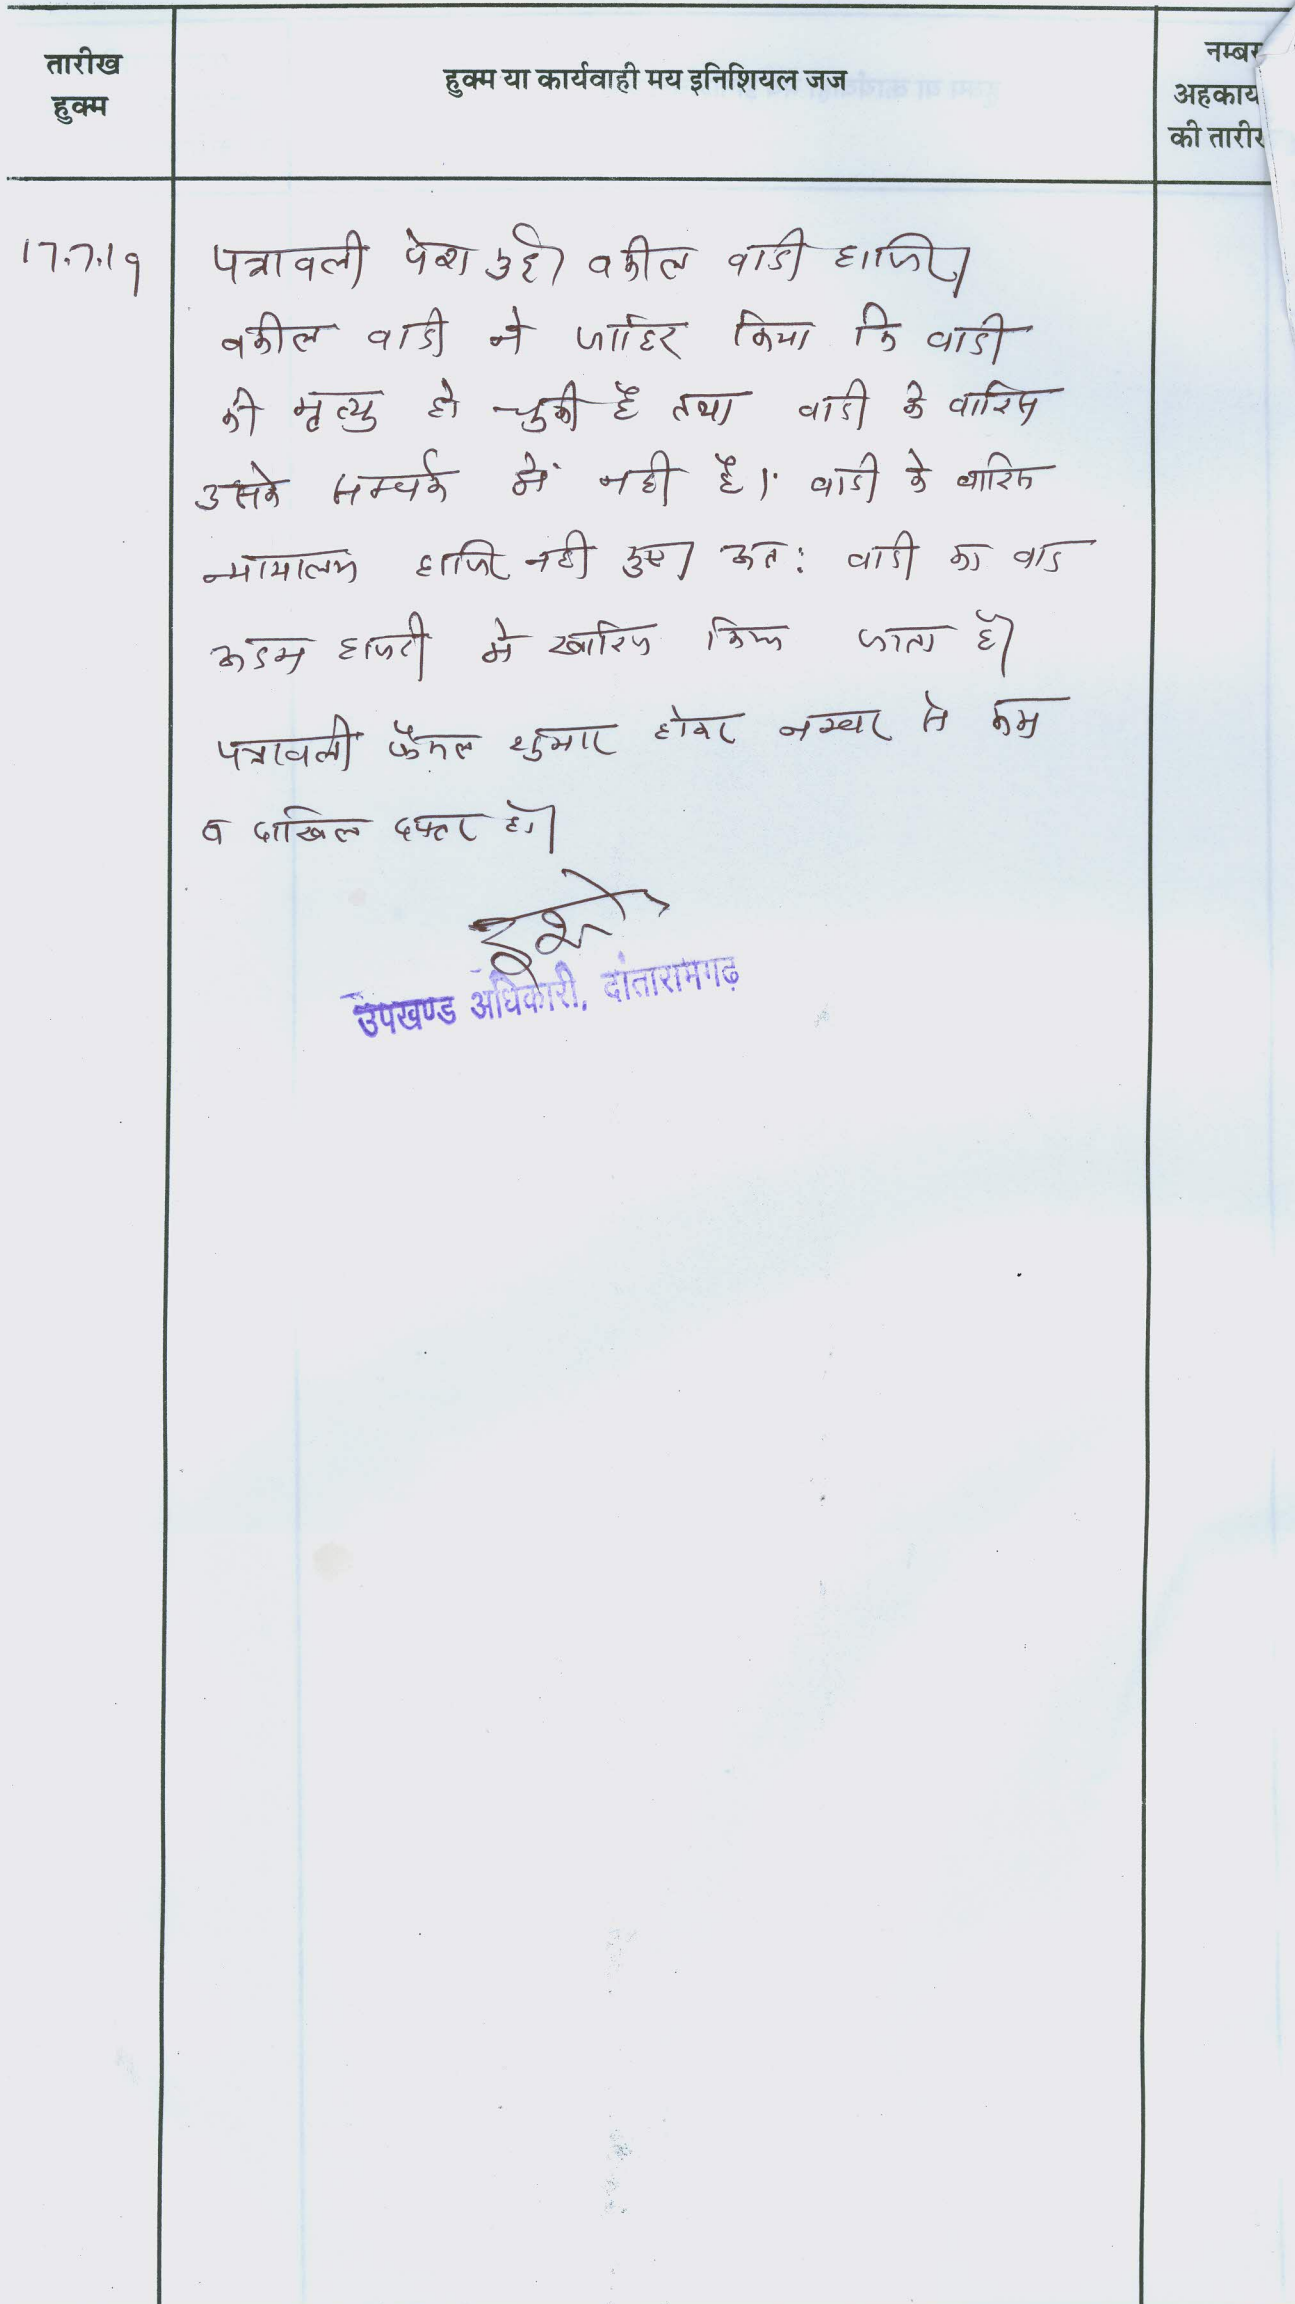 तारीख
हुक्म
हुक्म या कार्यवाही मय इनिशियल जज
नम्बर
अहकाय
की तारीख
17.7.19
पत्रावली पेश हुई। वकील वादी हाजिर।
वकील वादी ने जाहिर किया कि वादी
की मृत्यु हो चुकी है तथा वादी के वारिस
उसके सम्पर्क में नही है। वादी के वारिस
न्यायालय हाजिर नही हुए। अतः वादी का वाद
अदम हाजरी मे खारिज किया जाता है।
पत्रावली फैसल शुमार होकर नम्बर से कम
व दाखिल दफ्तर हो।
उपखण्ड अधिकारी, दांतारामगढ़